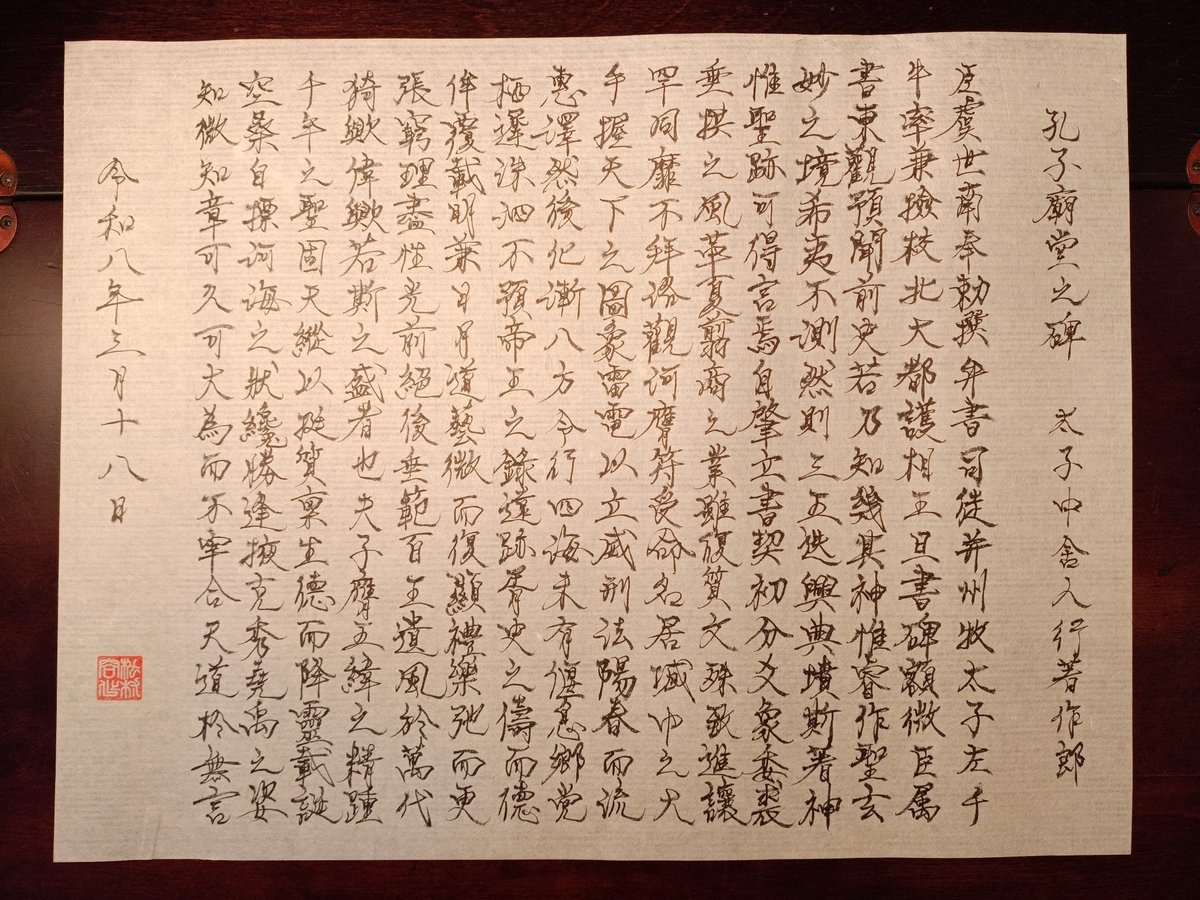 孔子廟堂之碑 太子中舎人行著作郎
臣虞世南奉勅撰并書司徒并州牧太子左千
牛率兼撿校北大都護相王旦書碑額微臣属
書東觀預聞前史若乃知幾其神惟睿作聖玄
妙之境希夷不測然則三五迭興典墳斯著神
惟聖跡可得言焉自肇立書契初分爻象委裘
垂拱之風革夏翦商之業雖復質文殊致進讓
罕同靡不拜洛觀河膺符受命名居域中之大
手握天下之圖象雷電以立威刑法陽春而流
惠澤然後化漸八方令行四海未有偃息郷党
栖遲洙泗不預帝王之錄遠跡胥史之儔而德
侔覆載明兼日月道藝微而復顯禮樂弛而更
張窮理盡性光前絕後垂範百王遺風於萬代
猗歟偉歟若斯之盛者也夫子膺五緯之精踵
千年之聖固天縱以挺質稟生德而降靈載誕
空桑自摽河海之狀纔勝逢掖克秀堯禹之姿
知微知章可久可大為而不宰合天道於無言
令和八年三月十八日